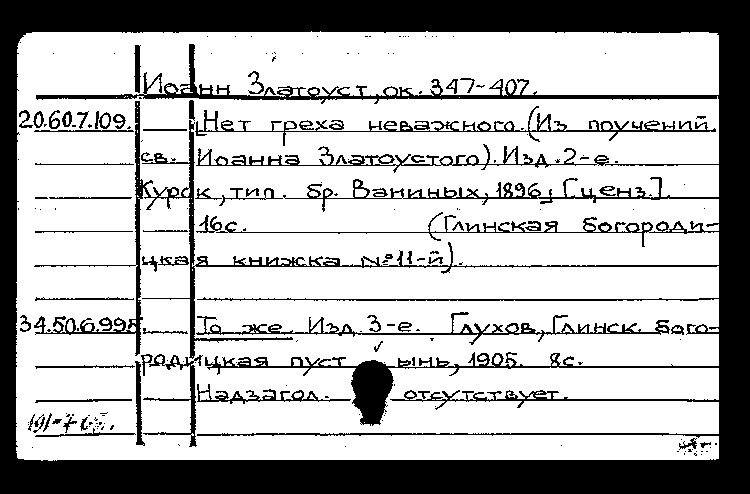 Иоанн Златоуст, ок. 347-407.
20.60.7.109. [Нет греха неважного. (Из поучений
св. Иоанна Златоустого). Изд. 2-е.
Курск, тип. бр. Ваниных, 1896] [ценз.].
16с. (Глинская богороди-
цкая книжка №11-й).
34.50.6.995. То же. Изд. 3-е. Глухов, Глинск. бого-
родицкая пустынь, 1905. 8с.
Надзагол. отсутствует.